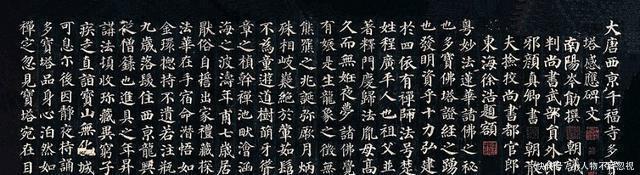 大唐西京千福寺多
塔感應碑文
南陽岑勛撰 朝
判尚書武部員外
邪顏真卿書 朝
夫撿挍尚書都官郎
東海徐浩題額
粵妙法蓮華諸佛之
也多寶佛塔證經之踴
也發明資乎十力弘建
於四依有禪師法號楚
姓程廣平人也祖父並
著釋門慶歸法胤母高
久而無妊夜夢諸佛覺
有娠是生龍象之徵無
熊羆之兆誕彌厥月炳
殊相岐嶷絕於葷茹髫
不為童遊道樹萌牙聳
章之楨榦禪池畎澮涵
海之波濤年甫七歲居
厭俗自誓出家禮藏探
法華在手宿命潛悟如
金環揔持不遺若注瓶
九歲落髮住西京龍興
從僧籙也進具之年昇
講法頓收珍藏異窮子
疾走直詣寶山無化城
可息尔後因靜夜持誦
多寶塔品身心泊然如
禪定忽見寶塔宛在目
人物不容忽视